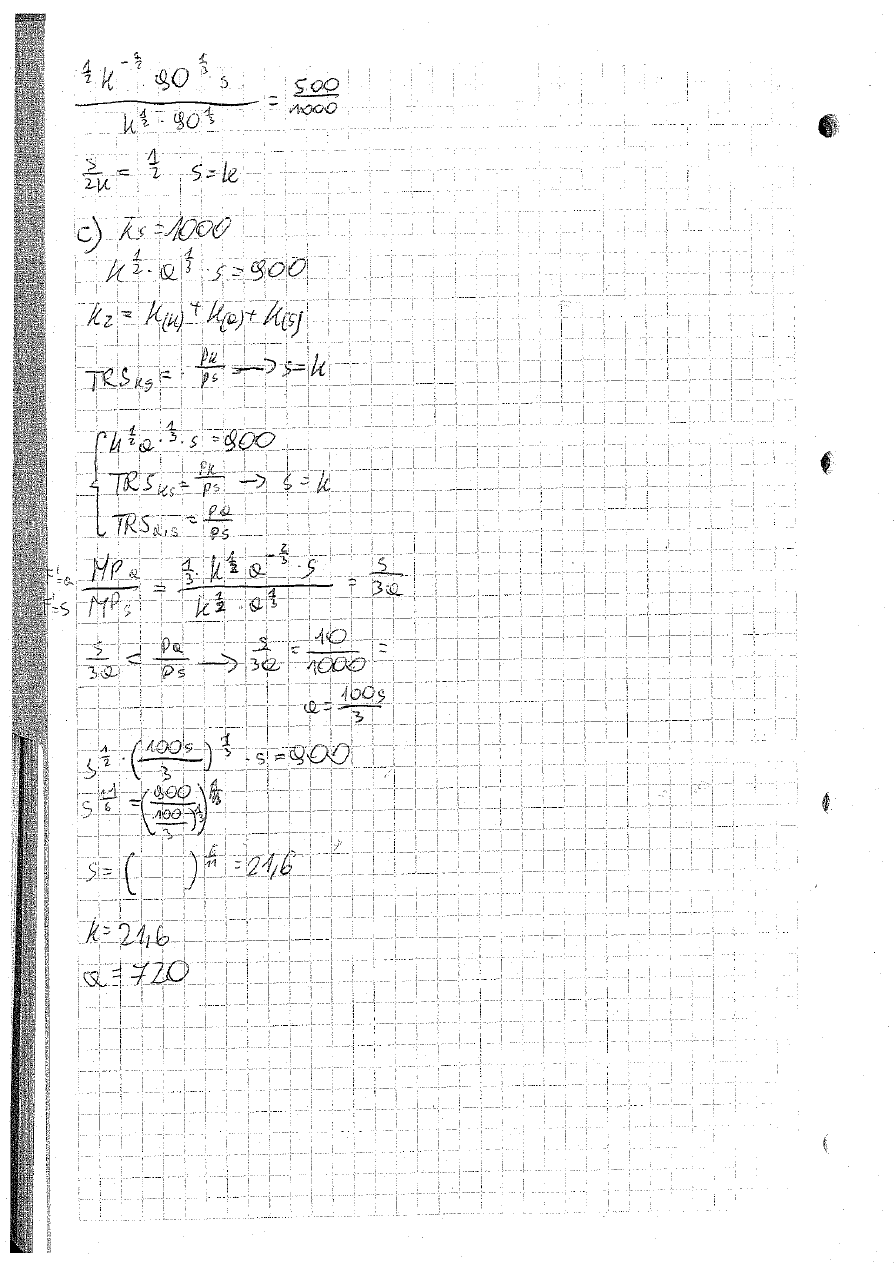 ½ k^(-1/2) · 90^(1/3) s / k^(1/2) · 90^(1/3) = 500/1000
s/2k = 1/2   s = k
c) ks = 1000
k^(1/2) · Q^(1/3) · s = 900
kz = k(k) + k(Q) + k(s)
TRS ks = pk/ps → s = k
k^(1/2) Q^(1/3) · s = 900
TRS ks = pk/ps → s = k
TRS Q,s = pQ/ps
MP Q / MP s = 1/3 · k^(1/2) Q^(-2/3) · s / k^(1/2) · Q^(1/3) = s/3Q
s/3Q = pQ/ps → s/3Q = 10/1000 =
Q = 100s/3
s^(1/2) · (100s/3)^(1/3) · s = 900
s^(11/6) = (900/(100/3)^(1/3))
s = (   )^(6/11) = 21,6
k = 21,6
Q = 720